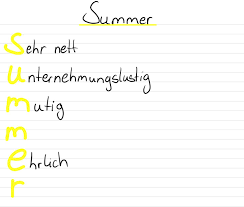 Summer
Sehr nett
Unternehmungslustig
Mutig
m
Ehrlich
r